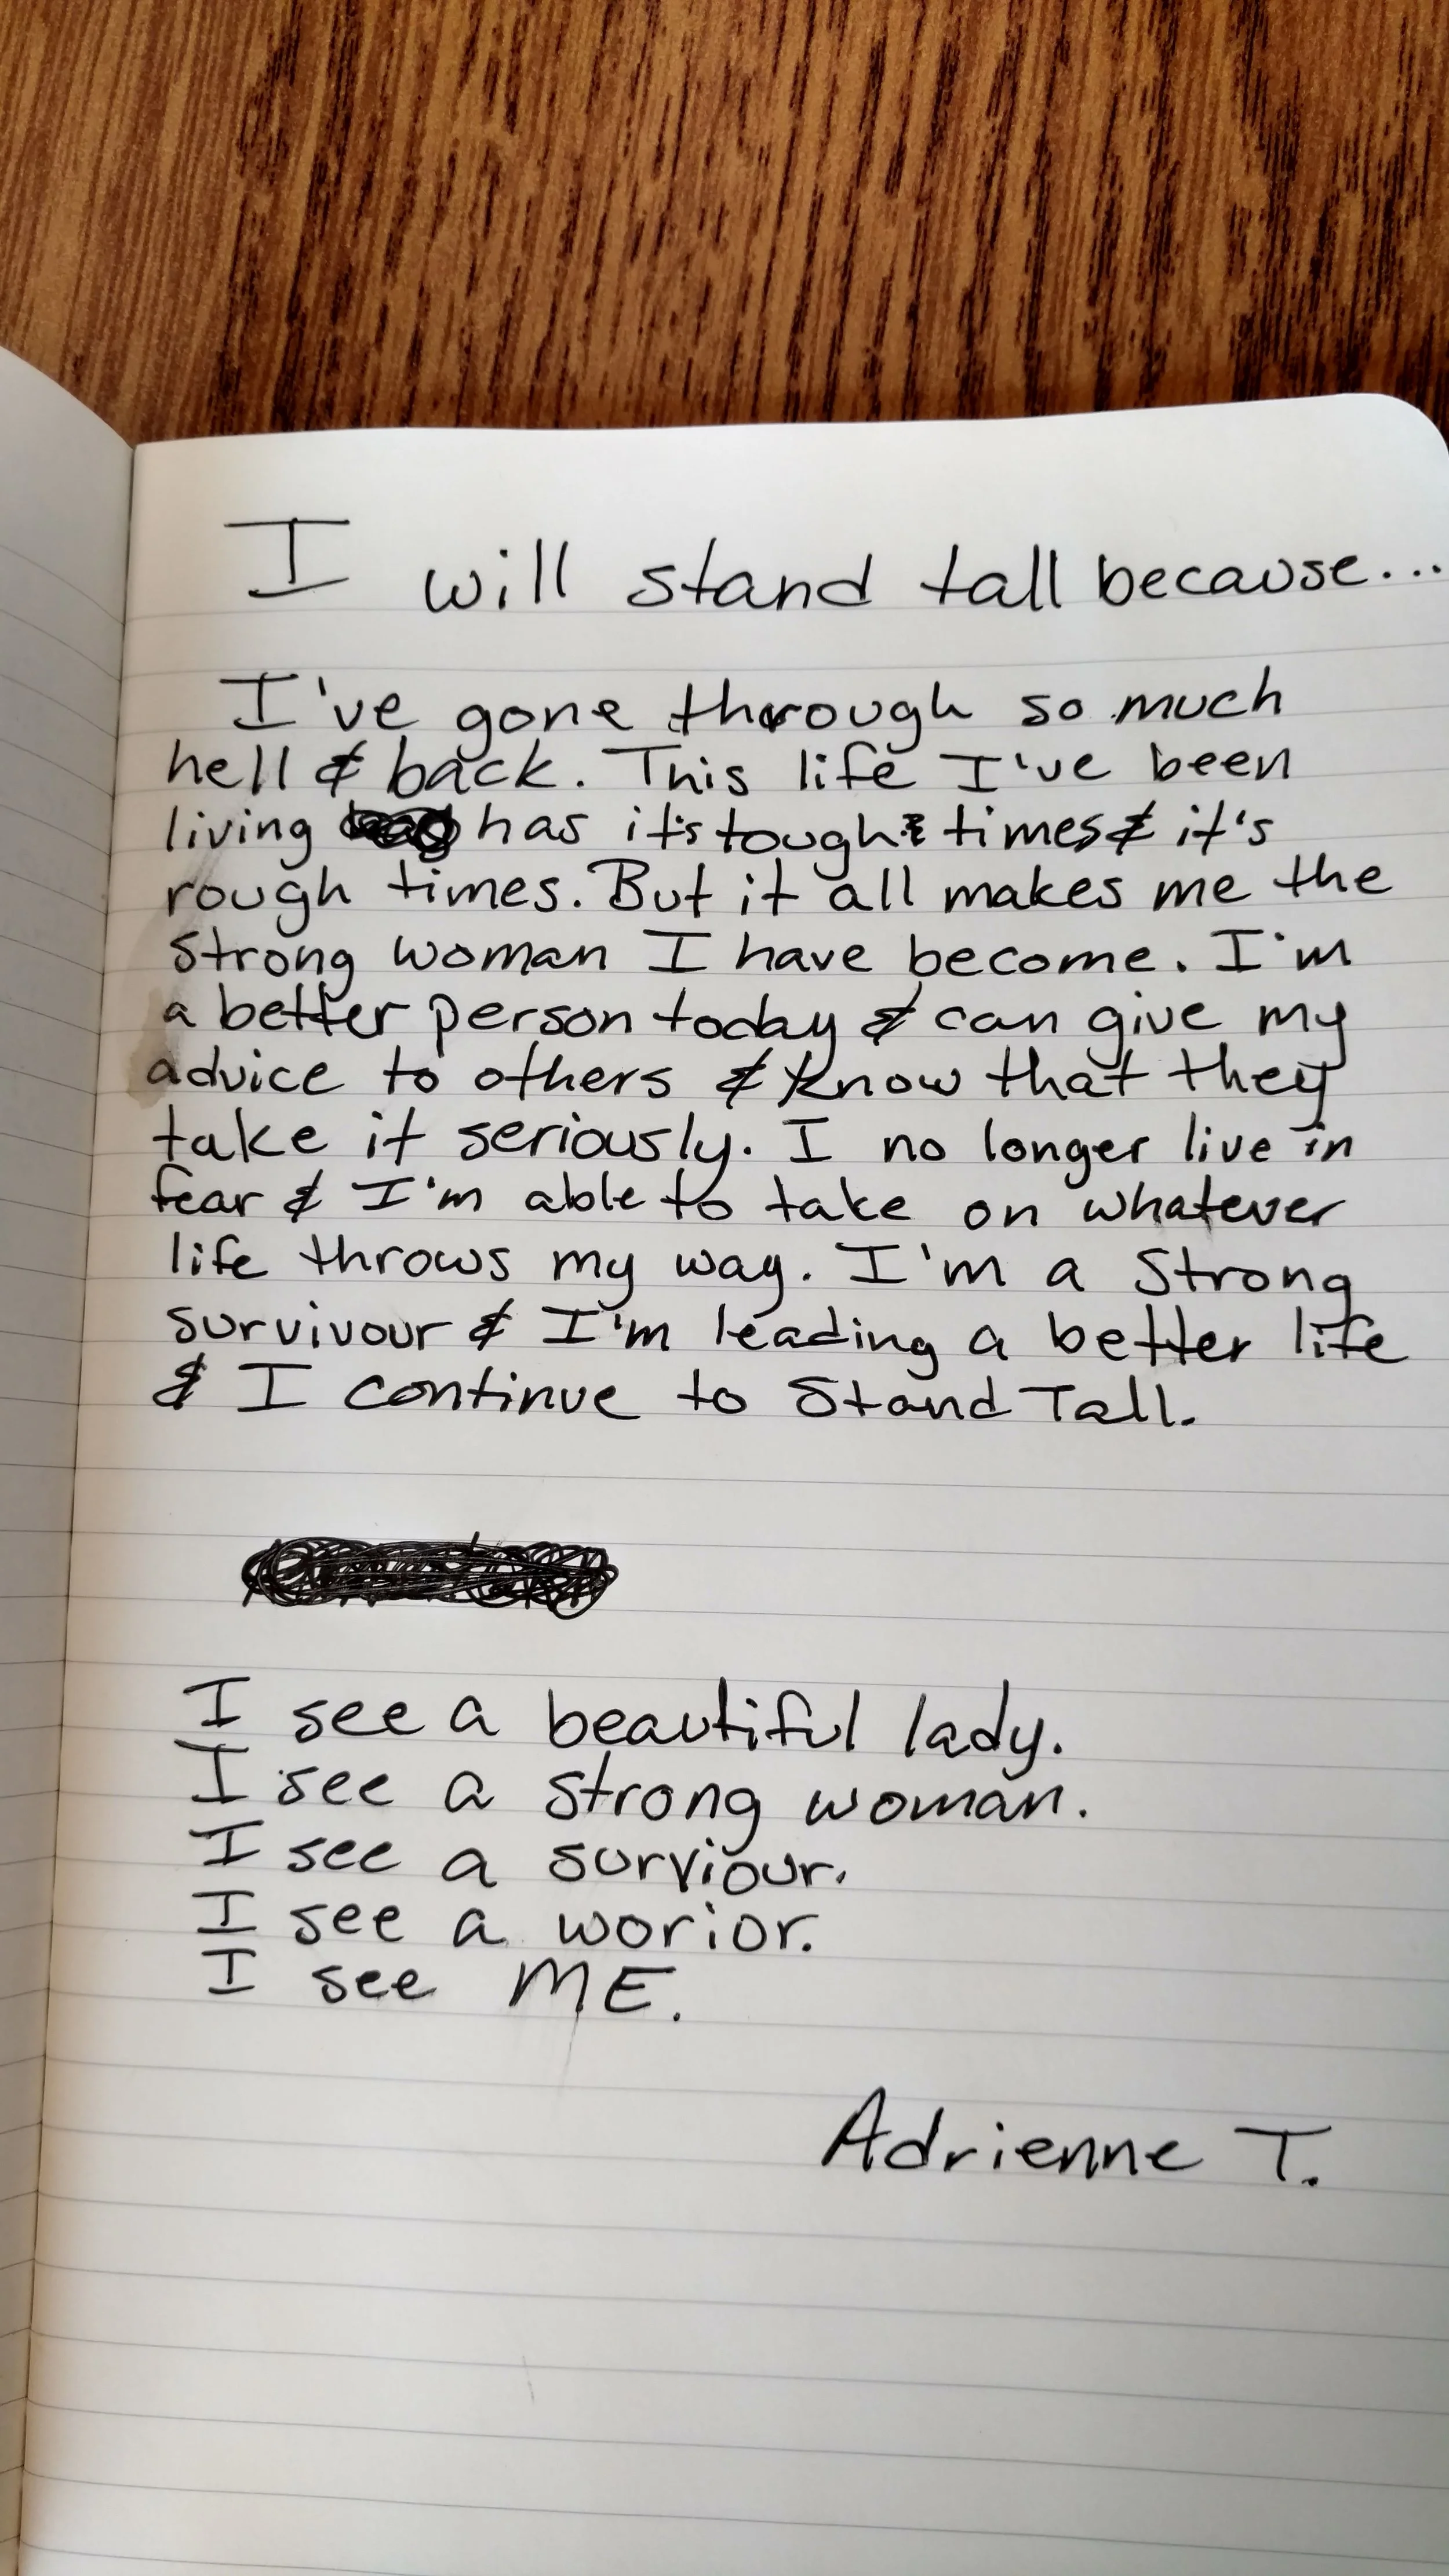 I will stand tall because...
I've gone through so much
hell & back. This life I've been
living has it's tough times & it's
rough times. But it all makes me the
strong woman I have become. I'm
a better person today & can give my
advice to others & know that they
take it seriously. I no longer live in
fear & I'm able to take on whatever
life throws my way. I'm a strong
survivour & I'm leading a better life
& I continue to Stand Tall.
I see a beautiful lady.
I see a strong woman.
I see a surviour.
I see a worior.
I see ME.
Adrienne T.